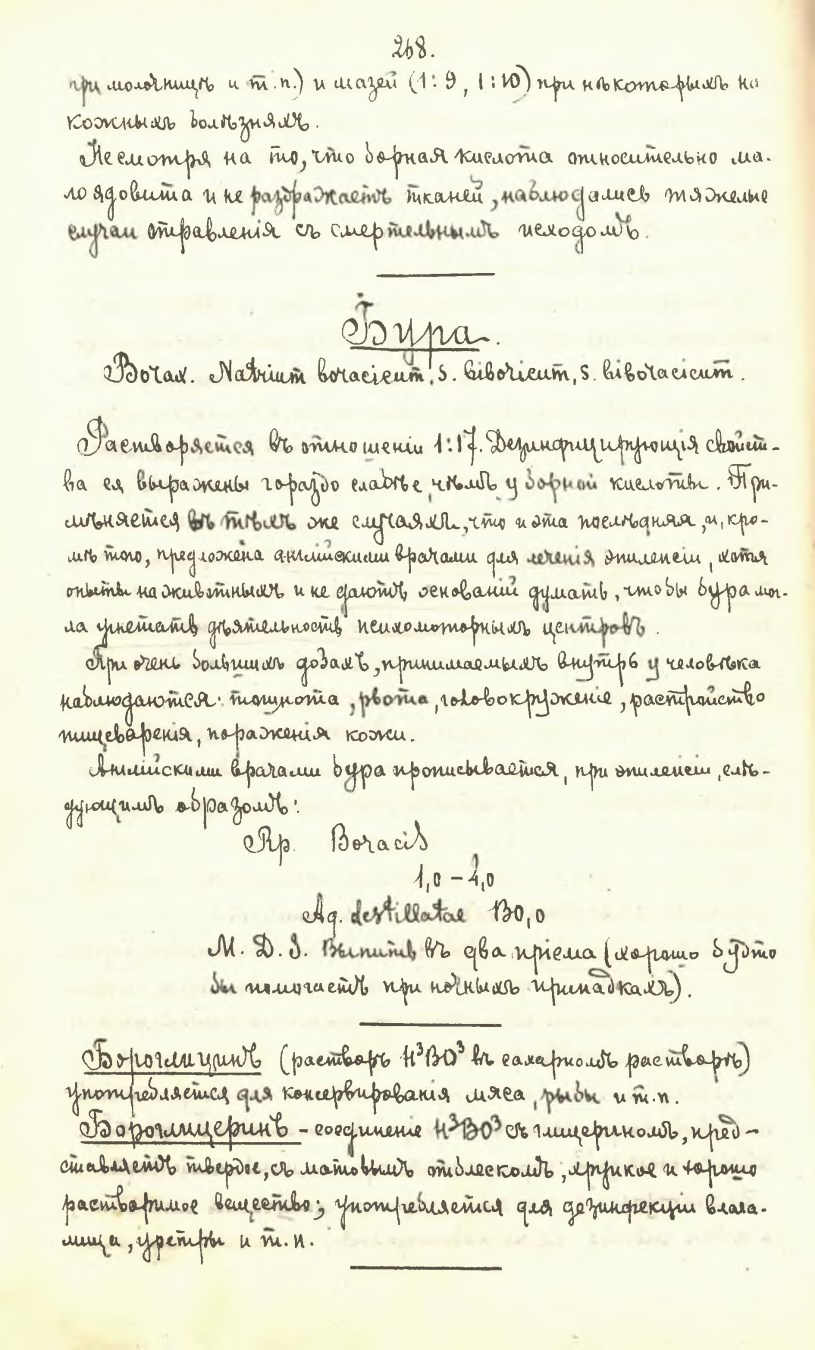 268.
при молочницѣ и т.п.) и мазей (1:9, 1:10) при нѣкоторыхъ на
кожныхъ болѣзняхъ.
Несмотря на то, что борная кислота относительно ма-
ло ядовита и не раздражаетъ тканей, наблюдались тяжелые
случаи отравленія съ смертельнымъ исходомъ.
Бура.
Borax. Natrium boracicum, s. biboricum, s. biboracicum.
Растворяется въ отношеніи 1:17. Дезинфицирующія свойст-
ва ея выражены гораздо слабѣе, чѣмъ у борной кислоты. При-
мѣняется въ тѣхъ же случаяхъ, что и эта послѣдняя, и, кро-
мѣ того, предложена англійскими врачами для леченія эпилепсіи, хотя
опыты на животныхъ и не даютъ основаній думать, чтобы бура мог-
ла угнетать дѣятельность психомоторныхъ центровъ.
При очень большихъ дозахъ, принимаемыхъ внутрь у человѣка
наблюдаются: тошнота, рвота, головокруженіе, растройство
пищеваренія, пораженія кожи.
Англійскими врачами бура прописывается, при эпилепсіи, слѣ-
дующимъ образомъ:
Rp. Boracis
1,0 – 2,0
Aq. destillatae 130,0
M. D. S. Выпить въ два пріема (хорошо будто
бы помогаетъ при ночныхъ припадкахъ).
Бороглицинъ (растворъ H³BO³ въ сахарномъ растворѣ)
употребляется для консервированія мяса, рыбы и т.п.
Бороглицеринъ – соединеніе H³BO³ съ глицериномъ, пред-
ставляетъ твердое, съ матовымъ отблескомъ, хрупкое и хорошо
растворимое вещество; употребляется для дезинфекціи влага-
лища, уретры и т.п.